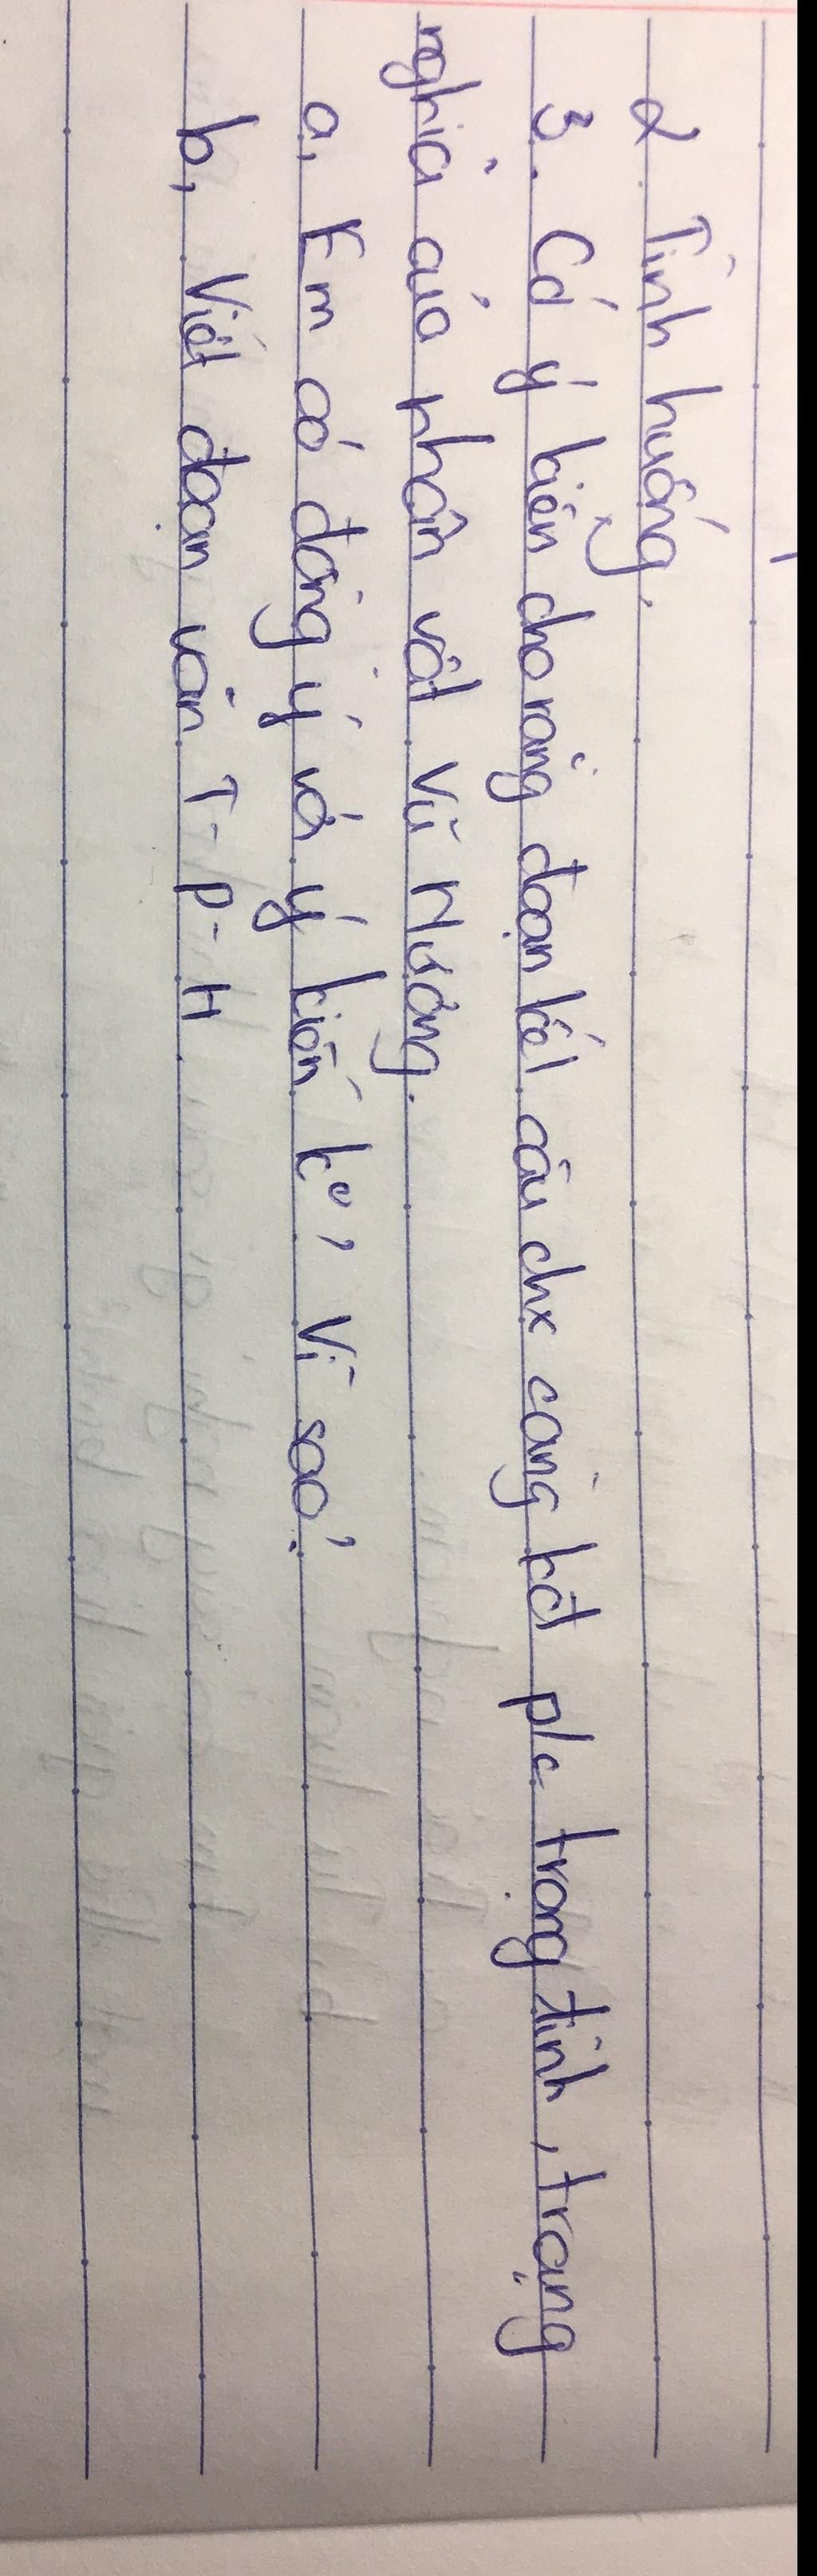 2. Tình huống.
3. Có ý kiến cho rằng đoạn kết câu chx càng kđ p/c trọng tình, trọng
nghĩa của nhân vật Vũ Nương.
a, Em có đồng ý với ý kiến ko, Vì sao?
b, Viết đoạn văn T-P-H